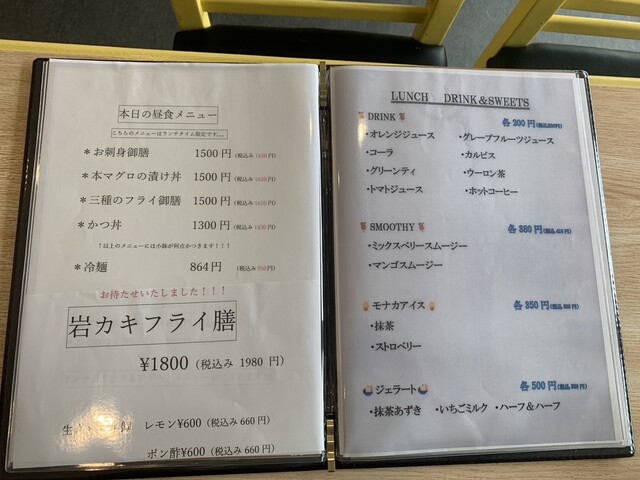 本日の昼食メニュー
こちらのメニューはランチタイム限定です。。。
＊お刺身御膳 1500円 (税込み1650円)
＊本マグロの漬け丼 1500円 (税込み1650円)
＊三種のフライ御膳 1500円 (税込み1650円)
＊かつ丼 1300円 (税込み1430円)
↑以上のメニューには小鉢が何点かつきます！！！
＊冷麺 864円 (税込み950円)
お待たせいたしました！！！
岩カキフライ膳
¥1800（税込み 1980 円）
生 レモン¥600（税込み 660 円）
ポン酢¥600（税込み 660 円）
LUNCH DRINK＆SWEETS
DRINK 各200円(税込220円)
・オレンジジュース ・グレープフルーツジュース
・コーラ ・カルピス
・グリーンティ ・ウーロン茶
・トマトジュース ・ホットコーヒー
SMOOTHY 各380円(税込418円)
・ミックスベリースムージー
・マンゴスムージー
モナカアイス 各350円(税込385円)
・抹茶
・ストロベリー
ジェラート 各500円(税込550円)
・抹茶あずき ・いちごミルク ・ハーフ＆ハーフ